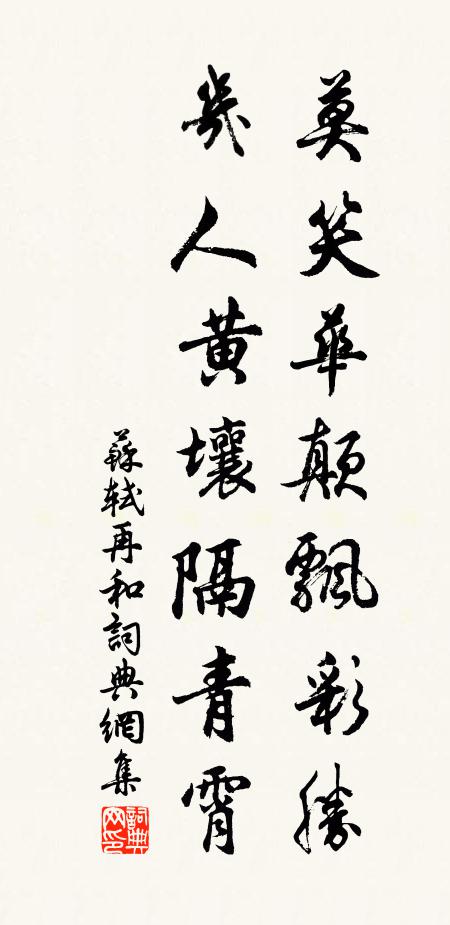 莫笑華顛飄彩勝
幾人黃壤隔青霄
蘇軾再和詞典網集
詞典网印